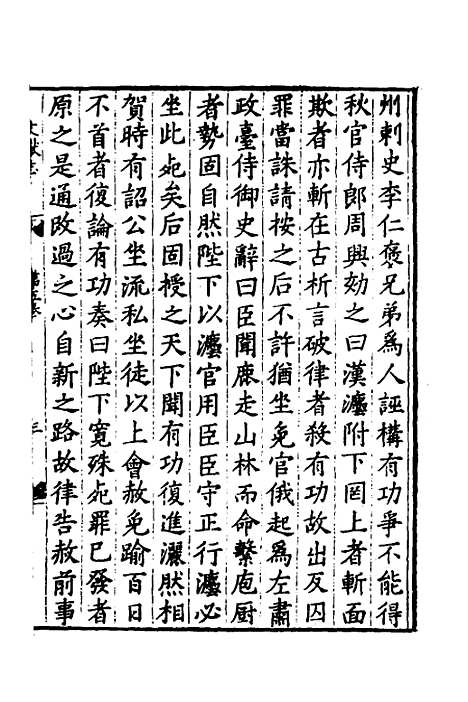 州刺史李仁褒兄弟爲人誣構有功爭不能得
秋官侍郎周興劾之曰漢灋附下罔上者斬面
欺者亦斬在古析言破律者殺有功故出反囚
罪當誅請按之后不許猶坐免官俄起爲左肅
政臺侍御史辭曰臣聞鹿走山林而命繫庖厨
者勢固自然陛下以灋官用臣臣守正行灋必
坐此死矣后固授之天下聞有功復進灑然相
賀時有詔公坐流私坐徒以上會赦免踰百日
不首者復論有功奏曰陛下寛殊死罪已發者
原之是通改過之心自新之路故律告赦前事
三